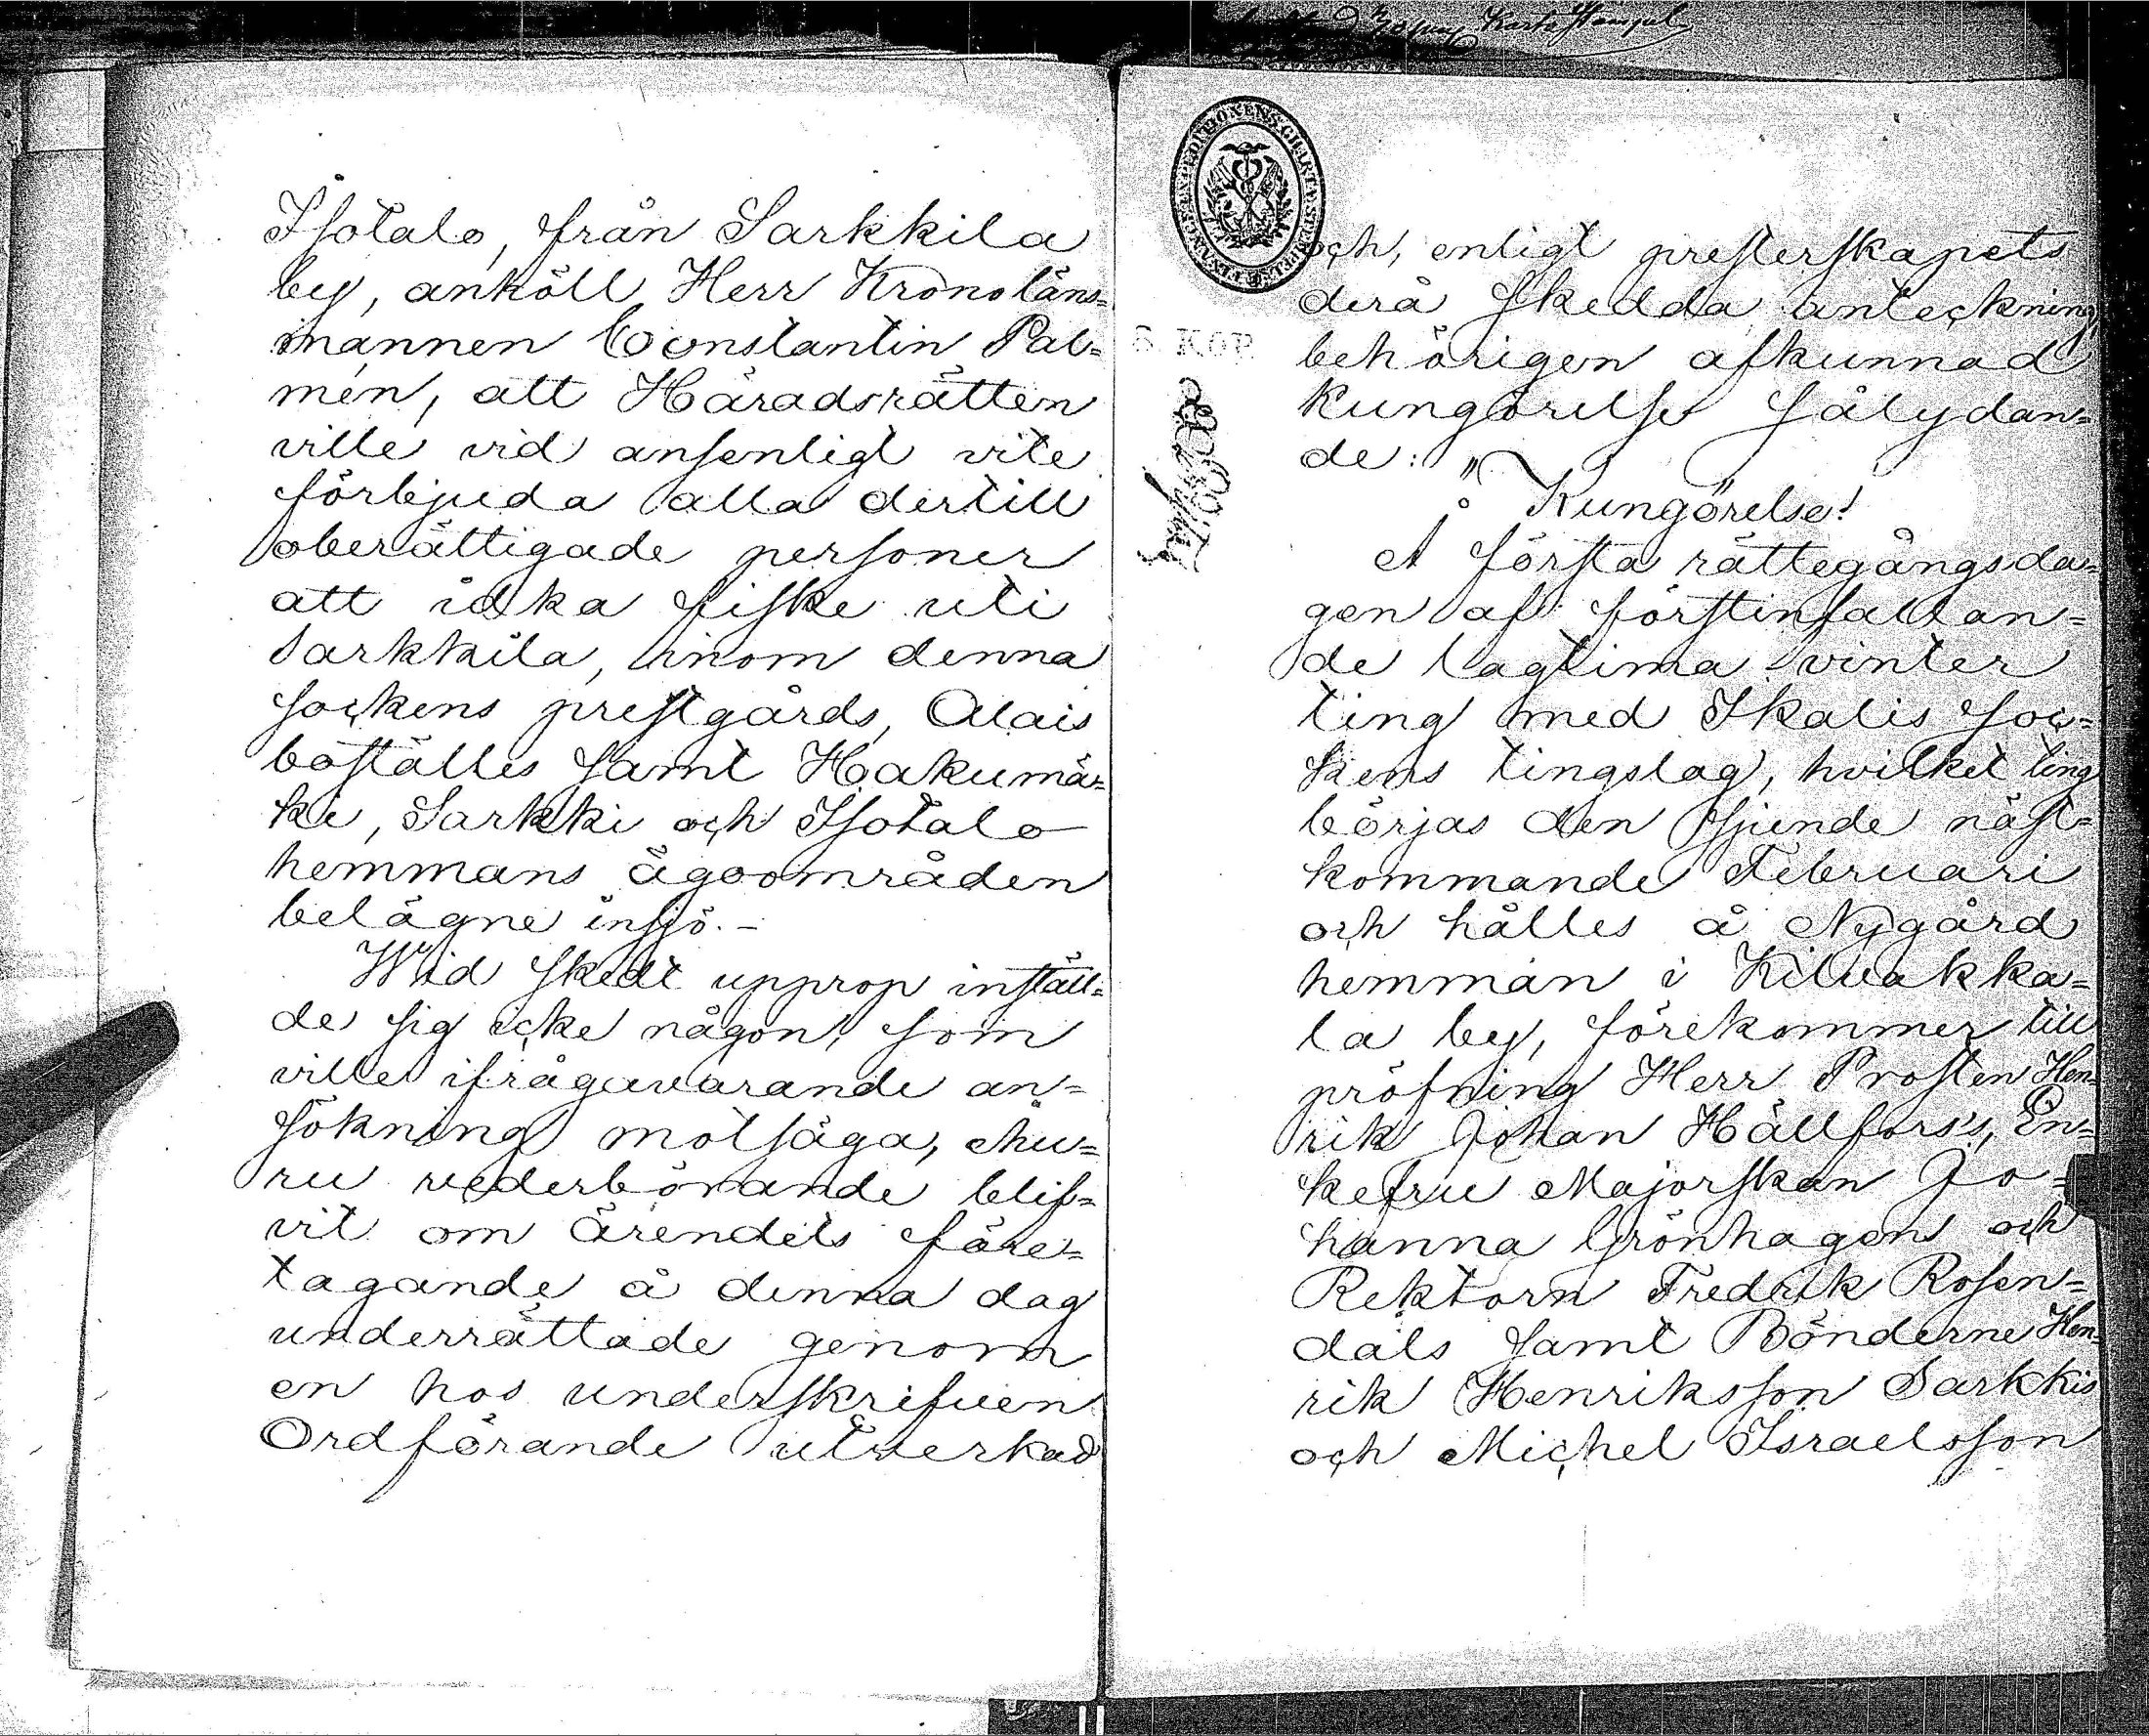 Isotalo, från Sarkkila
by, anhöll Herr Kronoläns=
mannen Constantin Pal=
mén, att Häradsrätten
ville vid ansenligt vite
förbjuda alla dertill
oberättigade personer
att idka fiske uti
Sarkkila, inom denna
sockens prestgårds, Alais
boställes samt Hakumä=
ki, Sarkki och Isotalo
hemmans ägoområden
belägne insjö. –
Wid skedt upprop inställ=
de sig icke någon, som
ville ifrågavarande an=
sökning motsäga, ehu=
ru vederbörande blif=
vit om ärendets före=
tagande å denna dag
underrättade genom
en hos underskrifven
Ordförande utverkad
Karta Stämpel
6 KOP.
och, enligt presterskapets
derå skedda anteckning,
behörigen afkunnad
Kungörelse sålydan=
de: "
Kungörelse!
Å första rättegångsda=
gen af förstinfallan=
de lagtima vinter
ting med Ikalis soc=
kens tingslag, hvilket ting
börjas den sjunde näst=
kommande Februari
och hålles å Nygård
hemman i Kilvakka=
la by, förekommer till
pröfning Herr Prosten Hen=
rik Johan Hällfors's, En=
kefru Majorskan Jo=
hanna Grönhagens och
Rektorn Fredrik Rosen=
dals samt Bönderne Hen=
rik Henriksson Sarkkis
och Michel Israelsson